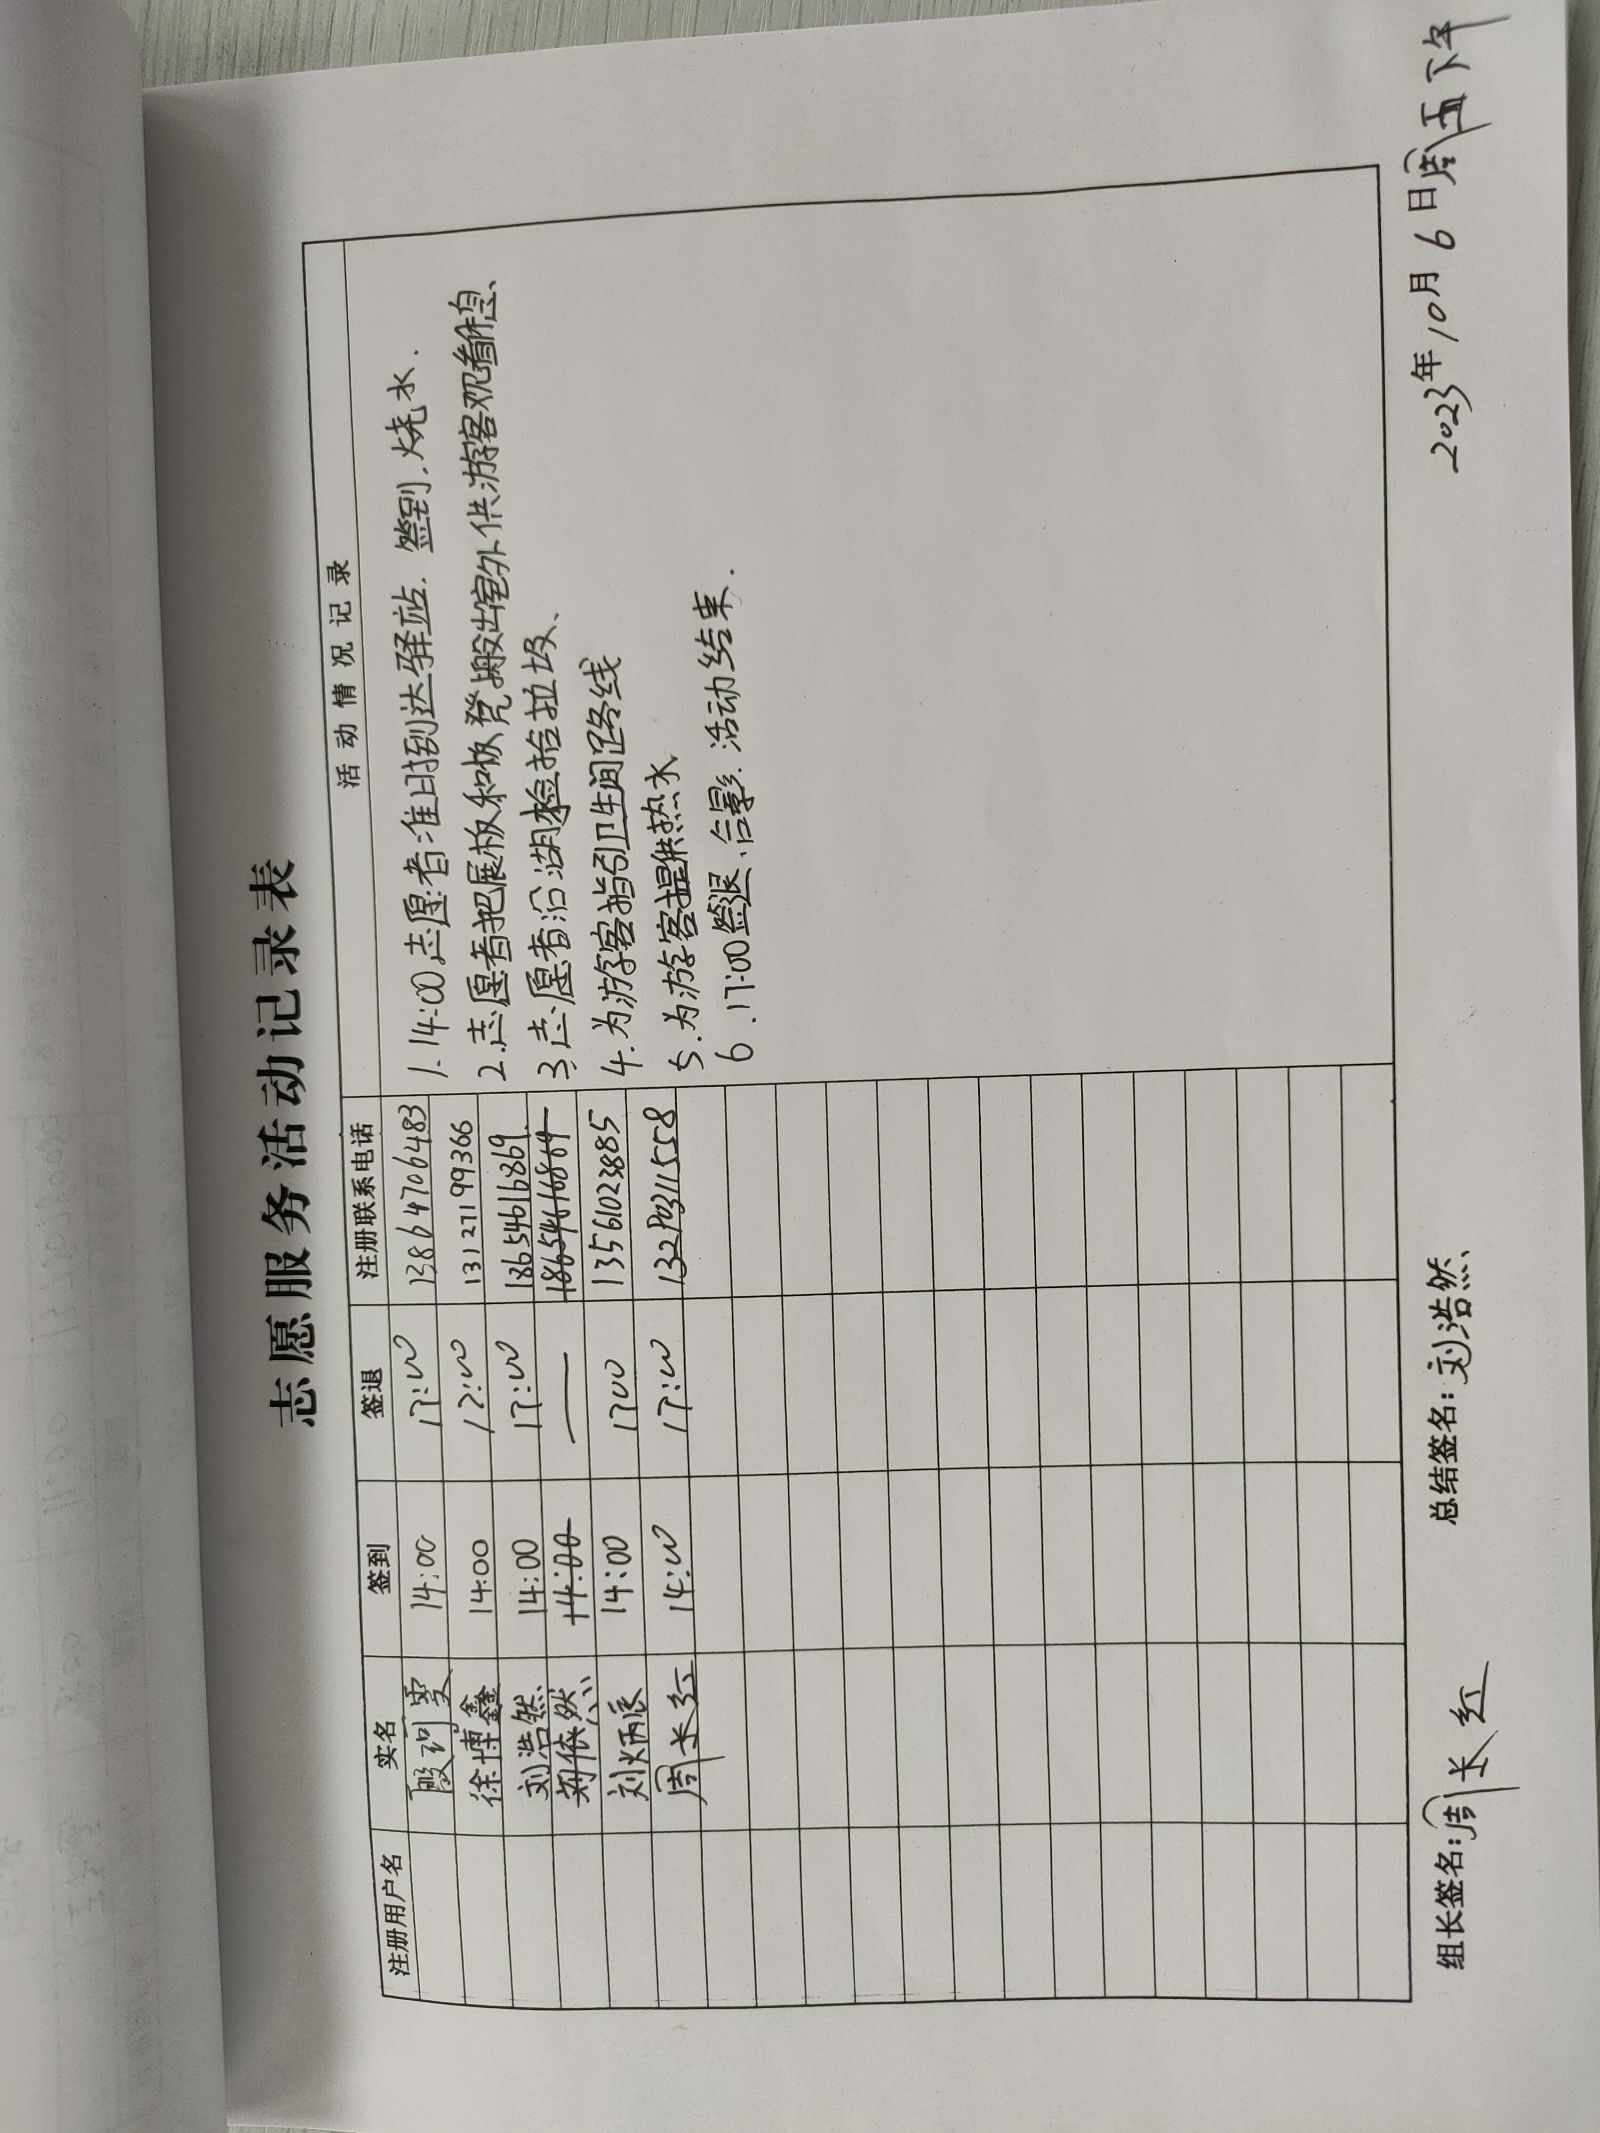 志愿服务活动记录表
注册用户名 实名 签到 签退 注册联系电话 活动情况记录
殷 雯 14:00 17:00 13864706483
徐博鑫 14:00 17:00 13127199366
刘浩然 14:00 17:00 18654616869
刘依然 14:00 — 18654616869
刘炳辰 14:00 1700 13561023885
周长红 14:00 17:00 13290311558
1. 14:00志愿者准时到达驿站. 签到. 烧水.
2.志愿者把展板和板凳搬出室外供游客观看休息、
3.志愿者沿湖检拾垃圾、
4.为游客指引卫生间路线
5.为游客提供热水
6.17:00签退、合影. 活动结束.
组长签名:周长红 总结签名:刘浩然 2023年10月6日周五下午